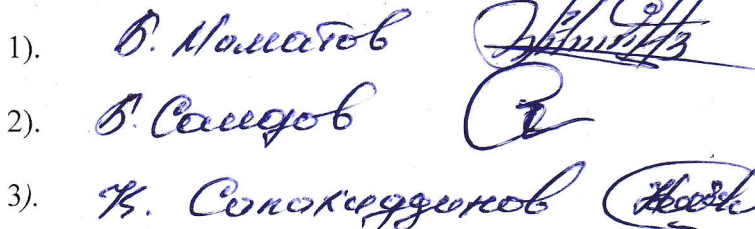 1). Б. Маматов
2). Б. Саидов
3). К. Салохиддинов